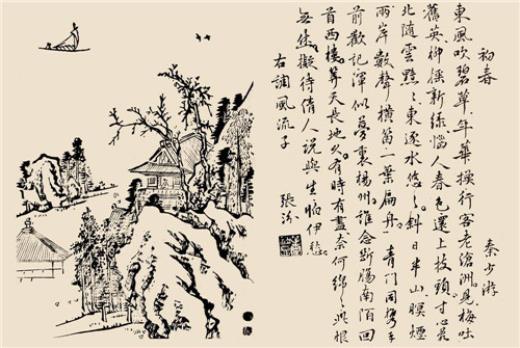 初春
秦少游
東風吹碧草。年華換行客老滄洲。見梅吐
舊英。柳搖新綠。惱人春色還上枝頭。寸心亂
北隨雲黯〻。東逐水悠〻。斜日半山。暝煙
兩岸。數聲橫笛。一葉扁舟。青門同携手
前歡記渾似夢裏楊州。誰念斷腸南陌回
首西樓。算天長地久。有時有盡奈何綿〻此恨
無休。擬待倩人說與生怕伊愁。
右調風流子
張